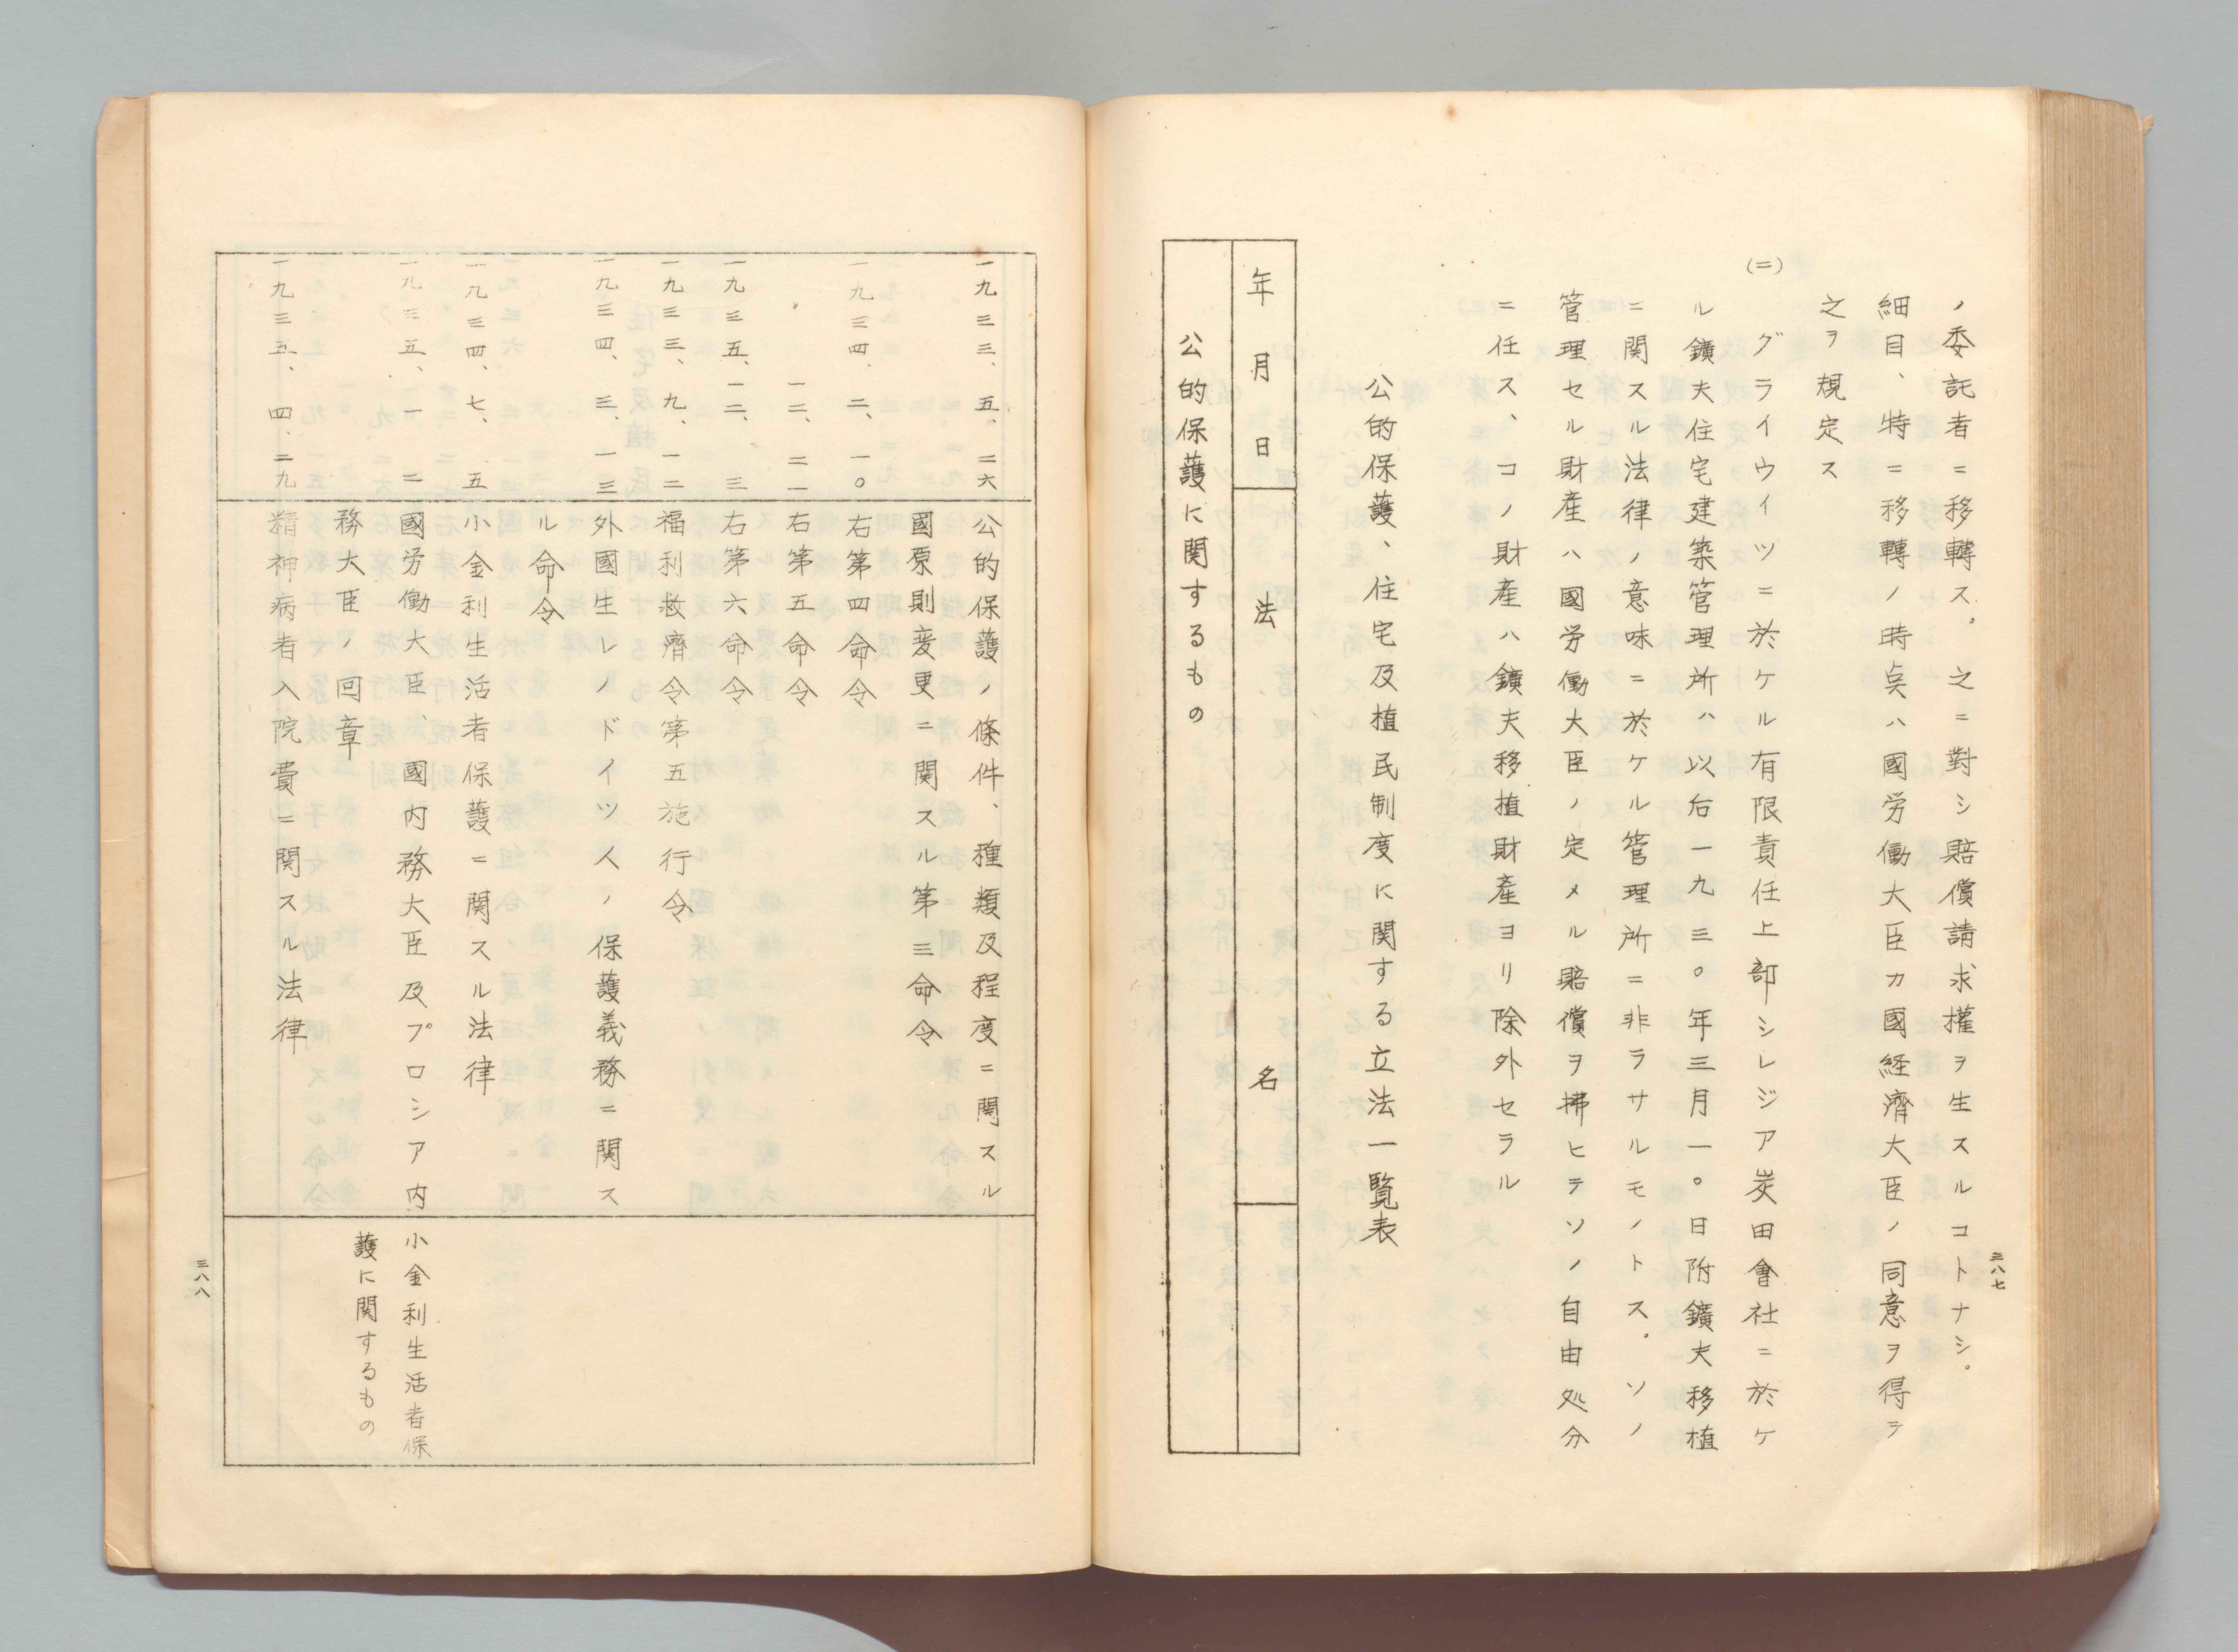 三八七
ノ委託者ニ移轉ス。之ニ對シ賠償請求權ヲ生スルコトナシ。
細目、特ニ移轉ノ時矣ハ國労働大臣カ國経濟大臣ノ同意ヲ得テ
之ヲ規定ス
(二)
グライウイツニ於ケル有限責任上部シレジア炭田會社ニ於ケ
ル鑛夫住宅建築管理所ハ以后一九三〇年三月一〇日附鑛夫移植
ニ関スル法律ノ意味ニ於ケル管理所ニ非ラサルモノトス。ソノ
管理セル財産ハ國労働大臣ノ定メル賠償ヲ拂ヒテソノ自由処分
ニ任ス、コノ財産ハ鑛夫移植財產ヨリ除外セラル
公的保護、住宅及植民制度に関する立法一覧表
年月日
法名
公的保護に関するもの
一九三三、五、二六
公的保護ノ條件、種類及程度ニ関スル
國原則変更ニ関スル第三命令
一九三四、二、一〇
右第四命令
〃 一二、二一
右第五命令
一九三五、一二、三
右第六命令
一九三三、九、一二
福利救濟令第五施行令
一九三四、三、一三
外國生レノドイツ人ノ保護義務ニ関ス
ル命令
一九三四、七、五
小金利生活者保護ニ関スル法律
一九三五、一、二
國労働大臣、國内務大臣及プロシア内
務大臣ノ回章
小金利生活者保
護に関するもの
一九三五、四、二九
精神病者入院費ニ関スル法律
三八八